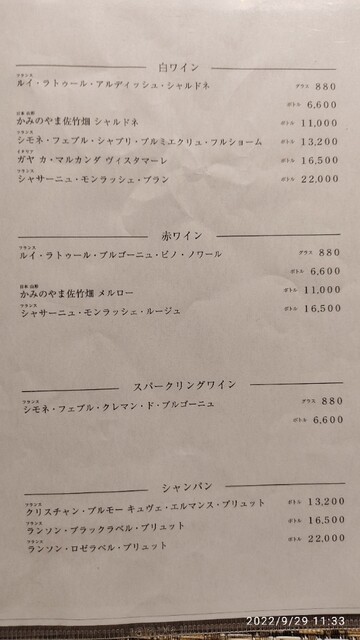 白ワイン
フランス
ルイ・ラトゥール・アルディッシュ・シャルドネ グラス 880
ボトル 6,600
日本 山形
かみのやま佐竹畑 シャルドネ ボトル 11,000
フランス
シモネ・フェブル・シャブリ・プルミエクリュ・フルショーム ボトル 13,200
イタリア
ガヤ カ・マルカンダ ヴィスタマーレ ボトル 16,500
フランス
シャサーニュ・モンラッシェ・ブラン ボトル 22,000
赤ワイン
フランス
ルイ・ラトゥール・ブルゴーニュ・ピノ・ノワール グラス 880
ボトル 6,600
日本 山形
かみのやま佐竹畑 メルロー ボトル 11,000
フランス
シャサーニュ・モンラッシェ・ルージュ ボトル 16,500
スパークリングワイン
フランス
シモネ・フェブル・クレマン・ド・ブルゴーニュ グラス 880
ボトル 6,600
シャンパン
フランス
クリスチャン・ブルモー キュヴェ・エルマンス・ブリュット ボトル 13,200
フランス
ランソン・ブラックラベル・ブリュット ボトル 16,500
フランス
ランソン・ロゼラベル・ブリュット ボトル 22,000
2022/9/29 11:33